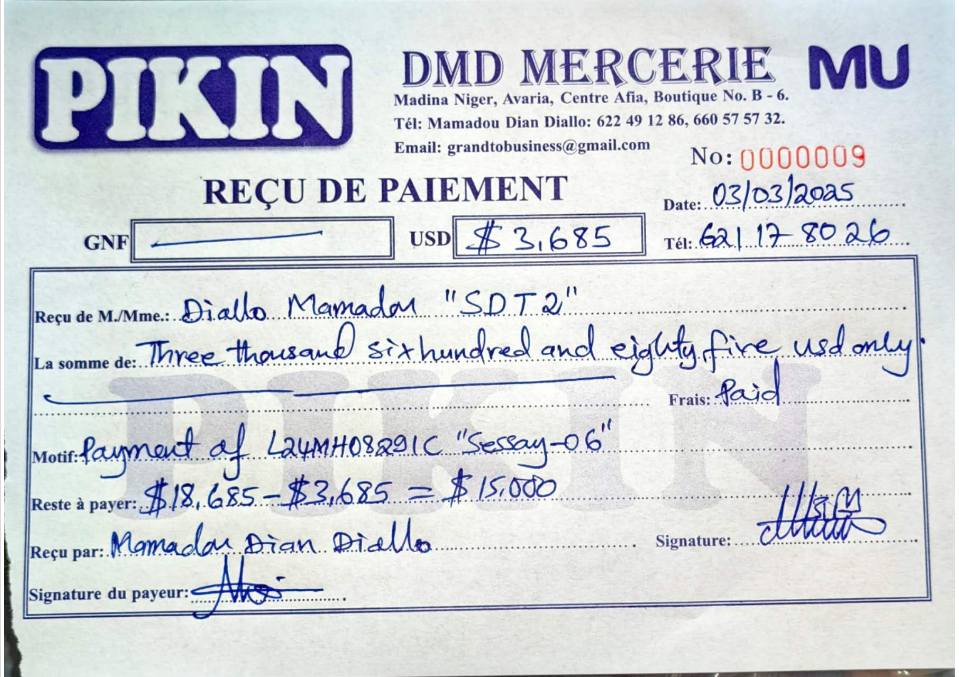 PIKIN
DMD MERCERIE MU
Madina Niger, Avaria, Centre Afia, Boutique No. B - 6.
Tél: Mamadou Dian Diallo: 622 49 12 86, 660 57 57 32.
Email: grandtobusiness@gmail.com
No: 0000009
REÇU DE PAIEMENT
Date: 03/03/2025
GNF USD $ 3,685 Tél: 621 17 80 26
Reçu de M./Mme.: Diallo Mamadou "SDT2"
La somme de: Three thousand six hundred and eighty five usd only.
Frais: Paid
PIKIN
Motif: Payment of L24MH08291C "Sessay-06"
Reste à payer: $18,685 - $3,685 = $15,000
Reçu par: Mamadou Dian Diallo Signature:
Signature du payeur: